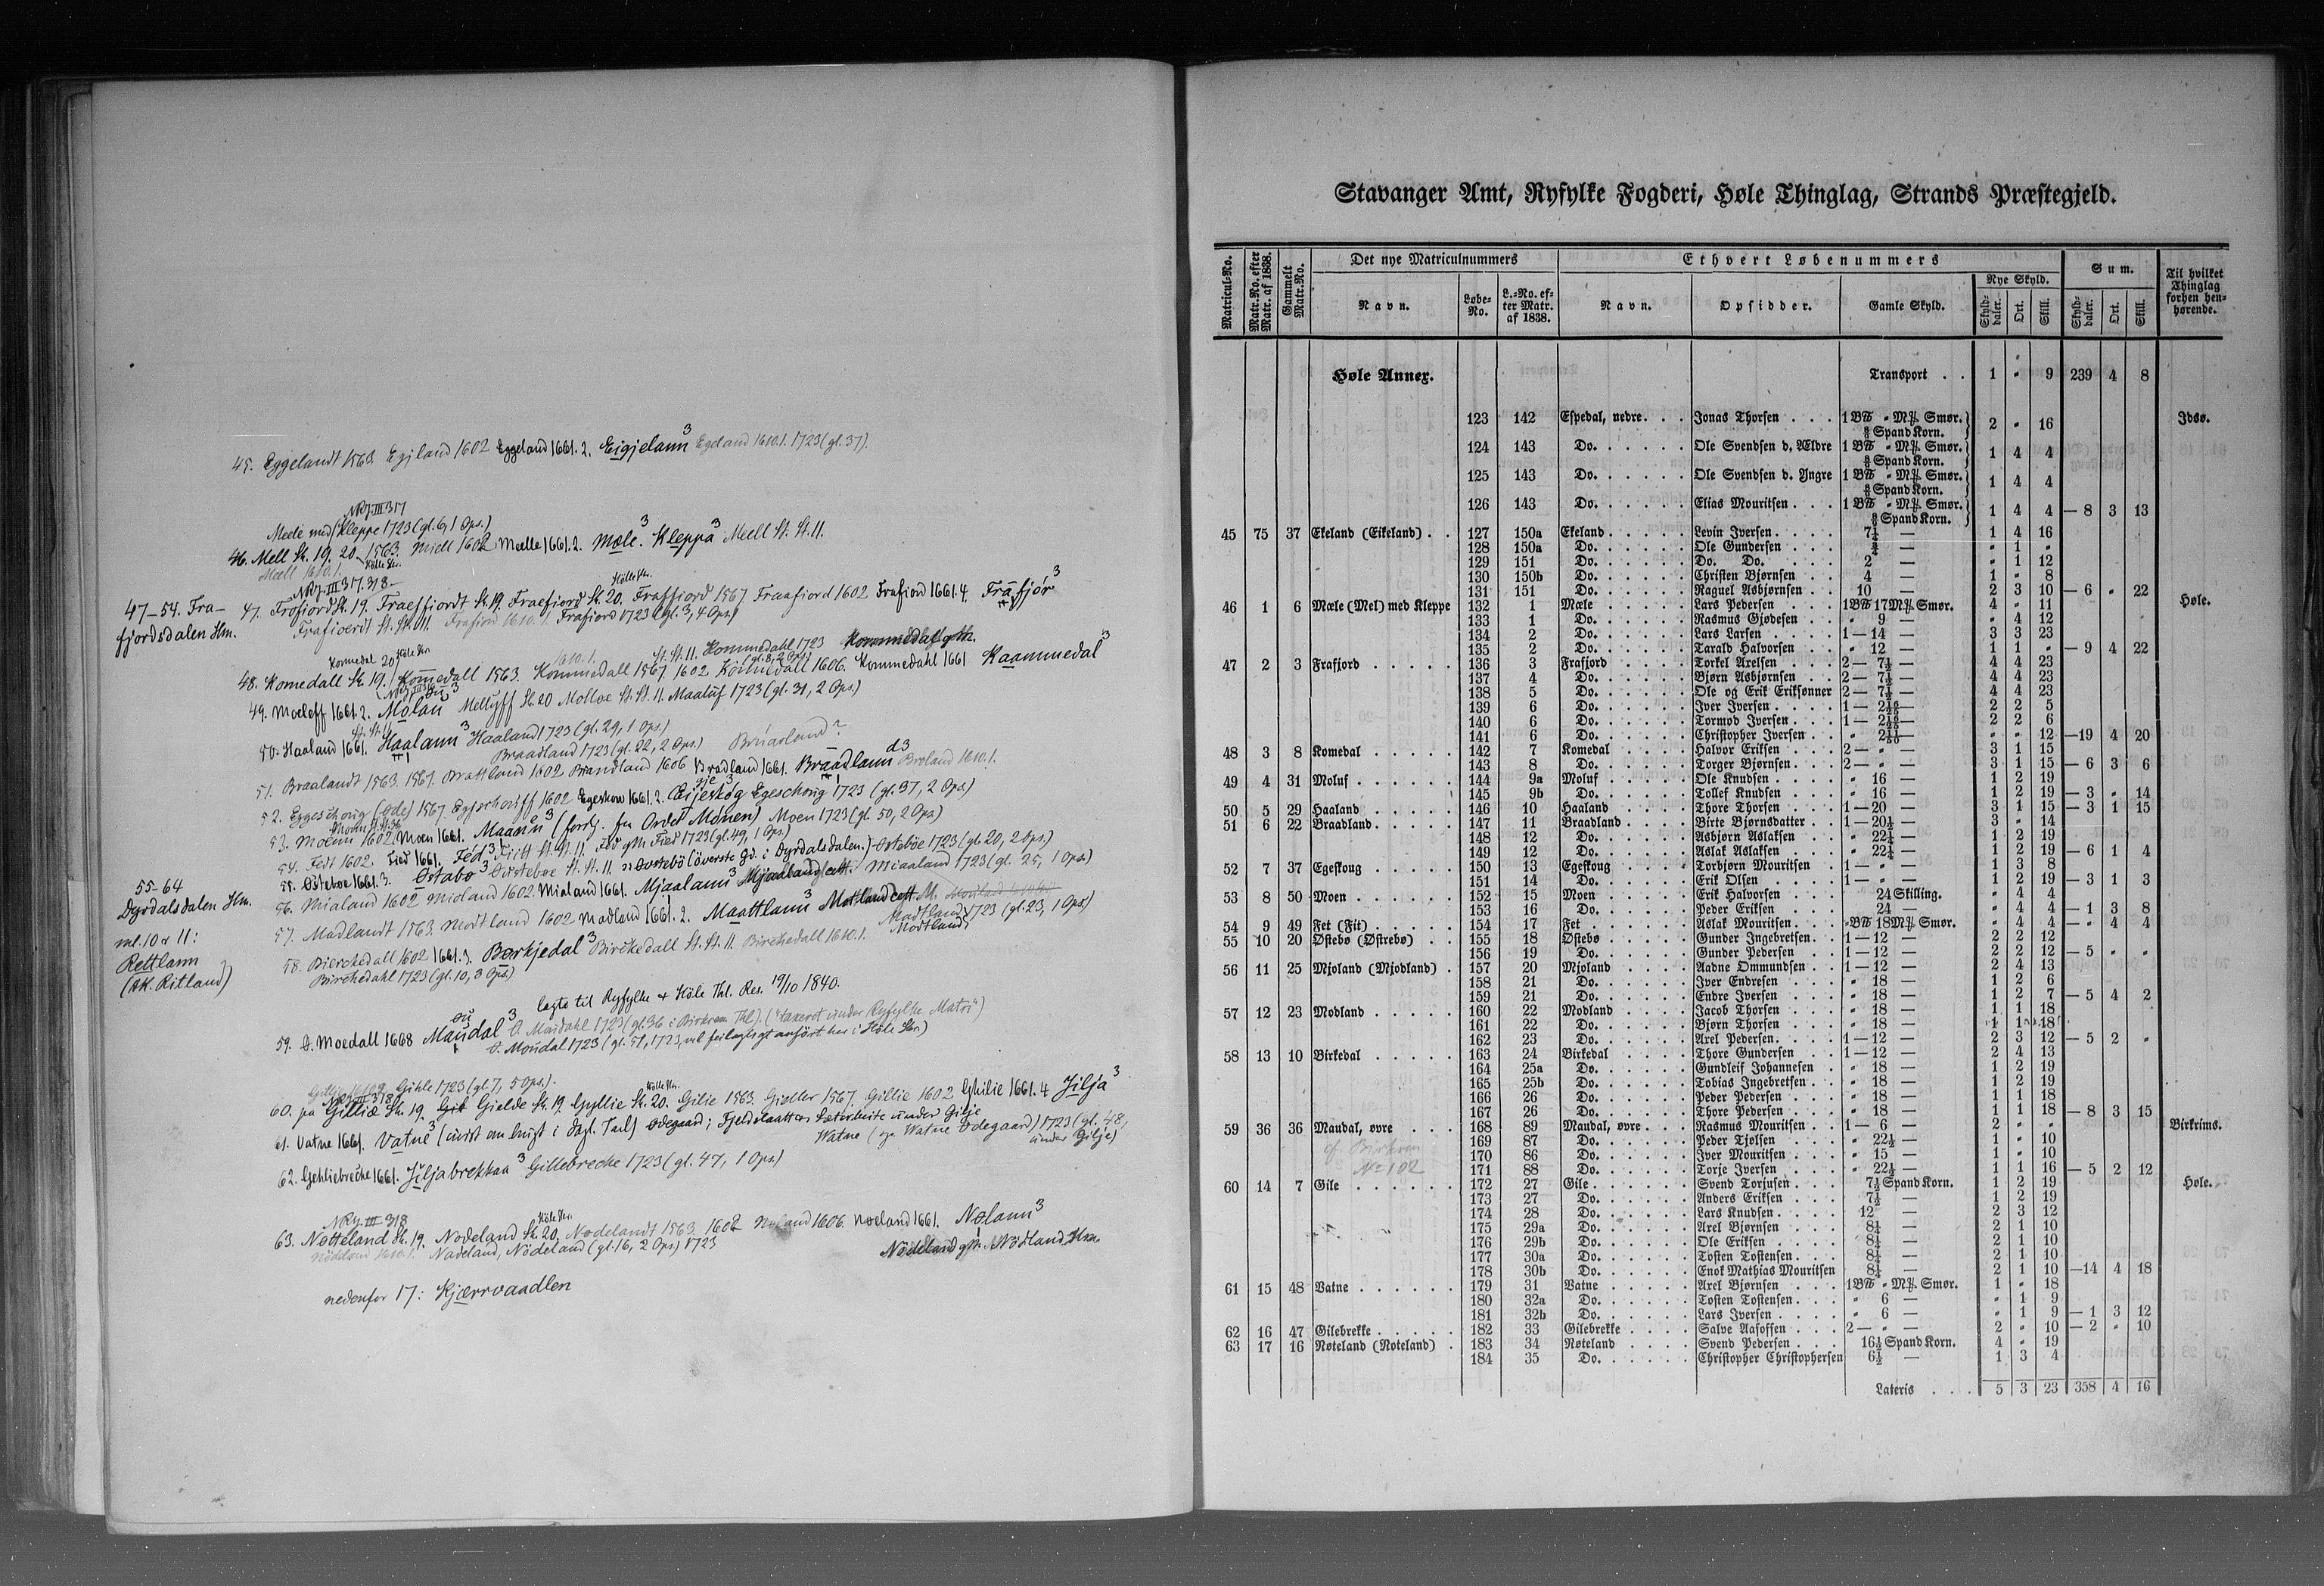 45. Eggelandt 1563. Egjland 1602 Eggeland 1661.2. Eigjelann³ Egeland 1610.1. 1723 (gl. 37).
NRJ. III 317
Meele med Kleppe 1723 (gl. 6, 1 Ops.)
46. Mell Sk. 19. 20. 1563. Miell 1602 Mælle 1661.2. Mæle.³ Kleppå³ Meell St. St. 11.
Mæll 1610.1. Hölle Skr.
NRJ. III 317. 318
Hölle Skr.
47–54. Fra-
fjordsdalen Hm.
47. Frofiord Sk. 19. Fraeffiordt Sk. 19. Fraefiord Sk. 20. Fraffiord 1567 Fraafiord 1602 Frafiord 1661.4. Fråfjór³
Frafioerdt St. St. 11. Frafiord 1610.1. Frafiord 1723 (gl. 3, 4 Ops)
Komedal 20 Höle Skr. 1610.1. St. St. 11. Kommedahl 1723 (gl. 8, 2 Ops)
48. Komedall Sk. 19. Komedall 1563. Kommedall 1567. 1602 Kommedall 1606. Kommedahl 1661 Kaammedal³
49. Moeleff 1661.2. Molau³ Mellyff Sk. 20 Molloe St. St. 11. Maaluf 1723 (gl. 31, 2 Ops.)
50. Haaland 1661. Haalann³ Haaland 1723 (gl. 29, 1 Ops.)
Braadland 1723 (gl. 22, 2 Ops.) Brúarland?
51. Braalandt 1563. 1567. Brattland 1602 Brandland 1606 Bradland 1661. Braadlann Broland 1610.1.
52. Eggeschoug (øde) 1567. Egjschouff 1602 Egeskow 1661.2. Œijeskog Egeschoug 1723 (gl. 37, 2 Ops)
53. Moenn 1602. Moen 1661. Maann³ (fordj. fra Ordet Monen) Moen 1723 (gl. 50, 2 Ops)
54. Fedt 1602. Fied 1661. Féd³ Fiett St. St. 11. Fed gM. Fied 1723 (gl. 49, 1 Ops)
55–64
Dyrdalsdalen Hm.
55. Østebøe 1661.3. Østabø³ Oustebøe St. St. 11. (överste Gd. i Dyrdalsdalen.) Østebøe 1723 (gl. 20, 2 Ops.)
56. Mialand 1602 Mioland 1602. Mialand 1661. Mjaalann³ Miaaland 1723 (gl. 25, 1 Ops.)
57. Madlandt 1563. Modtland 1602 Madland 1661.2. Maattlann³
Madtland, Modtland 1723 (gl. 23, 1 Ops)
ml. 10 & 11:
Rettlann
(AK. Ritland)
58. Bierchedall 1602 1661.3. Børkjedal³ Birckedall St. St. 11. Birchedall 1610.1.
Birckedahl 1723 (gl. 10, 3 Ops.)
lagte til Ryfylke & Höle Thl. Res. 19/10 1840.
59. Ø. Moedall 1668 Maudal³ Ø. Maudahl 1723 (gl. 36 i Birkrem Thl.). ("taxeret under Ryfylke Matr.")
Ø. Moudal 1723 (gl. 51, 1723, vel feilagtigt anført her i Höle Skr.)
Gihle 1723 (gl. 7, 5 Ops.).
NRJ. III 318
60. på Gilliæ Sk. 19. Gielde Sk. 19. Gyllie Sk. 20. Gilie 1563. Gieller 1567. Gillie 1602 Ghilie 1661.4 Jilja³
61. Vatne 1661. Vatne³ (uvist om brugt i dagl. Tale) Ødegaard; Fjeldslaatt & Sæterbeite under Gilje
Watne (og Watne Ødegaard) 1723 (gl. 48, under Gilje)
62. Gehliebrecke 1661. Jiljabrekkaa³ Gillebrecke 1723 (gl. 47, 1 Ops.)
NRJ. III 318 Höle Skr.
63. Nøtteland Sk. 19. Nodeland Sk. 20. Nødelandt 1563. 1602 Noland 1606. Nøeland 1661. Nølann³
Nødeland 1610.1. Nodeland, Nödeland (gl. 16, 2 Ops) 1723 Nødeland gM. Nödland Hm.
nedenfor 17: Kjærrvaadlen
Stavanger Amt, Ryfylke Fogderi, Høle Thinglag, Strands Præstegjeld.
Matricul-No. | Matr.No. efter Matr. af 1838. | Gammelt Matr.No. | Det nye Matriculnummers | Ethvert Løbenummers | Sum. | Til hvilket Thinglag forhen henhørende.
Navn. | Løbe-No. | L.-No. efter Matr. af 1838. | Navn. | Opsidder. | Gamle Skyld. | Nye Skyld. Skylddaler. Ort. Skill. | Skylddaler. Ort. Skill.
Høle Annex. Transport . . 1 " 9 239 4 8
123 142 Espedal, nedre. . . Jonas Thorsen . . . 1 B℔ " M℔ Smør. ⅔ Spand Korn. 2 " 16 Idsø.
124 143 Do. Ole Svendsen d. Ældre 1 B℔ " M℔ Smør. ⅔ Spand Korn. 1 4 4
125 143 Do. Ole Svendsen d. Yngre 1 B℔ " M℔ Smør. ⅔ Spand Korn. 1 4 4
126 143 Do. Elias Mouritsen . . . 1 B℔ " M℔ Smør. ⅔ Spand Korn. 1 4 4 — 8 3 13
45 75 37 Ekeland (Eikeland) . . 127 150a Ekeland . . . Levin Iversen . . . 7½ — 1 4 16
128 150a Do. Ole Gundersen . . . ¾ — " 1 "
129 151 Do. Do. Do. 2 — " 1 12
130 150b Do. Christen Bjørnsen . . 4 — 1 " 8
131 151 Do. Raguel Asbjørnsen . . 10 — 2 3 10 — 6 " 22
46 1 6 Mæle (Mel) med Kleppe 132 1 Mæle Lars Pedersen . . . 1 B℔ 17 M℔ Smør. 4 " 11 Høle.
133 1 Do. Rasmus Gjødesen . . " 9 — " 4 12
134 2 Do. Lars Larsen . . . 1 — 14 — 3 3 23
135 2 Do. Tarald Halvorsen . . " 12 — 1 1 " — 9 4 22
47 2 3 Frafjord . . . 136 3 Frafjord Torkel Axelsen . . 2 — 7½ — 4 4 23
137 4 Do. Bjørn Asbjørnsen . . 2 — 7½ — 4 4 23
138 5 Do. Ole og Erik Eriksønner 2 — 7½ — 4 4 23
139 6 Do. Iver Iversen . . . 1 — 2 2 5
140 6 Do. Tormod Iversen . . . 1 — 2 2 6
141 6 Do. Christopher Iversen . . " " 12 — 19 4 20
48 3 8 Komedal . . . 142 7 Komedal Halvor Eriksen . . . 2 — " — 3 1 15
143 8 Do. Torger Bjørnsen . . . 2 — " — 3 1 15 — 6 3 6
49 4 31 Moluf . . . 144 9a Moluf Ole Knudsen . . . " 16 — 1 2 19
145 9b Do. Tollef Knudsen . . " 16 — 1 2 19 — 3 " 14
50 5 29 Haaland . . . 146 10 Haaland Thore Thorsen . . . 1 — 20 — 3 1 15 — 3 1 15
51 6 22 Braadland . . . 147 11 Braadland Birte Bjørnsdatter . . 1 — 20½ — 3 " 14
148 12 Do. Asbjørn Aslaksen . . " 22½ — 1 2 19
149 12 Do. Aslak Aslaksen . . " 22½ — 1 2 19 — 6 1 4
52 7 37 Egeskoug . . . 150 13 Egeskoug Torbjørn Mouritsen . . 1 — " — 1 3 8
151 14 Do. Erik Olsen . . . 1 — " — 1 2 19 — 3 1 3
53 8 50 Moen . . . 152 15 Moen Erik Halvorsen . . 24 Skilling. " 4 4
153 16 Do. Peder Eriksen . . . 24 — " 4 4 — 1 3 8
54 9 49 Fet (Fit) . . . 154 17 Fet Aslak Mouritsen . . . " B℔ 18 M℔ Smør. " 4 4 — " 4 4
55 10 20 Østebø (Østrebø) . . 155 18 Østebø Gunder Ingebretsen . . 1 — 12 — 2 2 12
156 19 Do. Gunder Pedersen . . 1 — 12 — 2 2 12 — 5 " "
56 11 25 Mjoland (Mjodland) . 157 20 Mjoland Aadne Ommundsen . . 1 — 12 — 2 4 13
158 21 Do. Iver Endresen . . " 18 — 1 2 6
159 21 Do. Endre Iversen . . . " 18 — 1 2 7 — 5 4 2
57 12 23 Modland . . . 160 22 Modland Jacob Thorsen . . . " 18 — 1 1 18
161 22 Do. Bjørn Thorsen . . . " 18 — 1 1 18
162 23 Do. Axel Pedersen . . . 1 — 12 — 2 3 12 — 5 2 "
58 13 10 Birkedal . . . 163 24 Birkedal Thore Gundersen . . 1 — 12 — 2 4 13
164 25a Do. Gundleif Johannesen . . " 18 — 1 2 19
165 25b Do. Tobias Ingebretsen . . " 18 — 1 2 19
166 26 Do. Peder Pedersen . . " 18 — 1 1 18
167 26 Do. Thore Pedersen . . " 18 — 1 1 18 — 8 3 15
59 36 36 Maudal, øvre . . . 168 89 Maudal, øvre . . . Rasmus Mouritsen . . 1 — 6 — 2 " " Birkrims.
169 87 Do. Peder Tjølsen . . " 22½ — 1 " 10
cf. Birkrem
170 86 Do. Iver Mouritsen . . " 15 — 1 " 10
No 102
171 88 Do. Torje Iversen . . " 22½ — 1 1 16 — 5 2 12
60 14 7 Gile . . . 172 27 Gile Svend Torjusen . . 7½ Spand Korn. 1 2 19 Høle.
173 27 Do. Anders Eriksen . . 7½ — 1 2 19
174 28 Do. Lars Knudsen . . . 12 — 2 3 12
175 29a Do. Axel Bjørnsen . . 8¼ — 2 1 10
176 29b Do. Ole Eriksen . . . 8¼ — 2 1 10
177 30a Do. Tosten Tostensen . . 8¼ — 2 1 10
178 30b Do. Enok Mathias Mouritsen 8¼ — 2 1 10 — 14 4 18
61 15 48 Vatne . . . 179 31 Vatne Axel Bjørnsen . . 1 B℔ " M℔ Smør. 1 " 18
180 32a Do. Tosten Tostensen . . " 6 — " 1 9
181 32b Do. Lars Iversen . . . " 6 — " 1 9 — 1 3 12
62 16 47 Gilebrekke . . . 182 33 Gilebrekke Salve Aasoffen . . 2 — " — 2 " 10 — 2 " 10
63 17 16 Nøteland (Noteland) . 183 34 Nøteland Svend Pedersen . . 16½ Spand Korn. 4 " 19
184 35 Do. Christopher Christophersen 6½ — 1 3 4
Lateris . . . 5 3 23 358 4 16